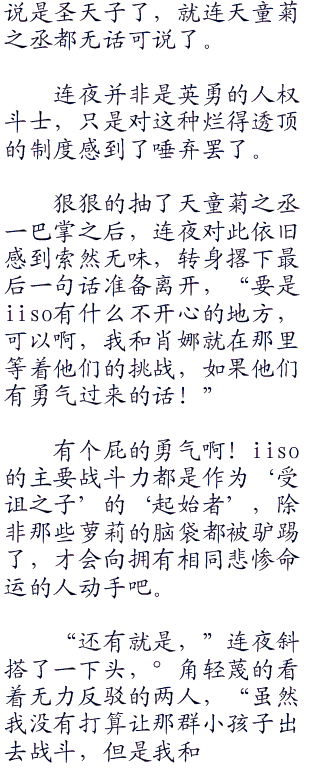 说是圣天子了，就连天童菊
之丞都无话可说了。
连夜并非是英勇的人权
斗士，只是对这种烂得透顶
的制度感到了唾弃罢了。
狠狠的抽了天童菊之丞
一巴掌之后，连夜对此依旧
感到索然无味，转身撂下最
后一句话准备离开，“要是
iiso有什么不开心的地方，
可以啊，我和肖娜就在那里
等着他们的挑战，如果他们
有勇气过来的话！”
有个屁的勇气啊！iiso
的主要战斗力都是作为‘受
诅之子’的‘起始者’，除
非那些萝莉的脑袋都被驴踢
了，才会向拥有相同悲惨命
运的人动手吧。
“还有就是，”连夜斜
搭了一下头，°角轻蔑的看
着无力反驳的两人，“虽然
我没有打算让那群小孩子出
去战斗，但是我和